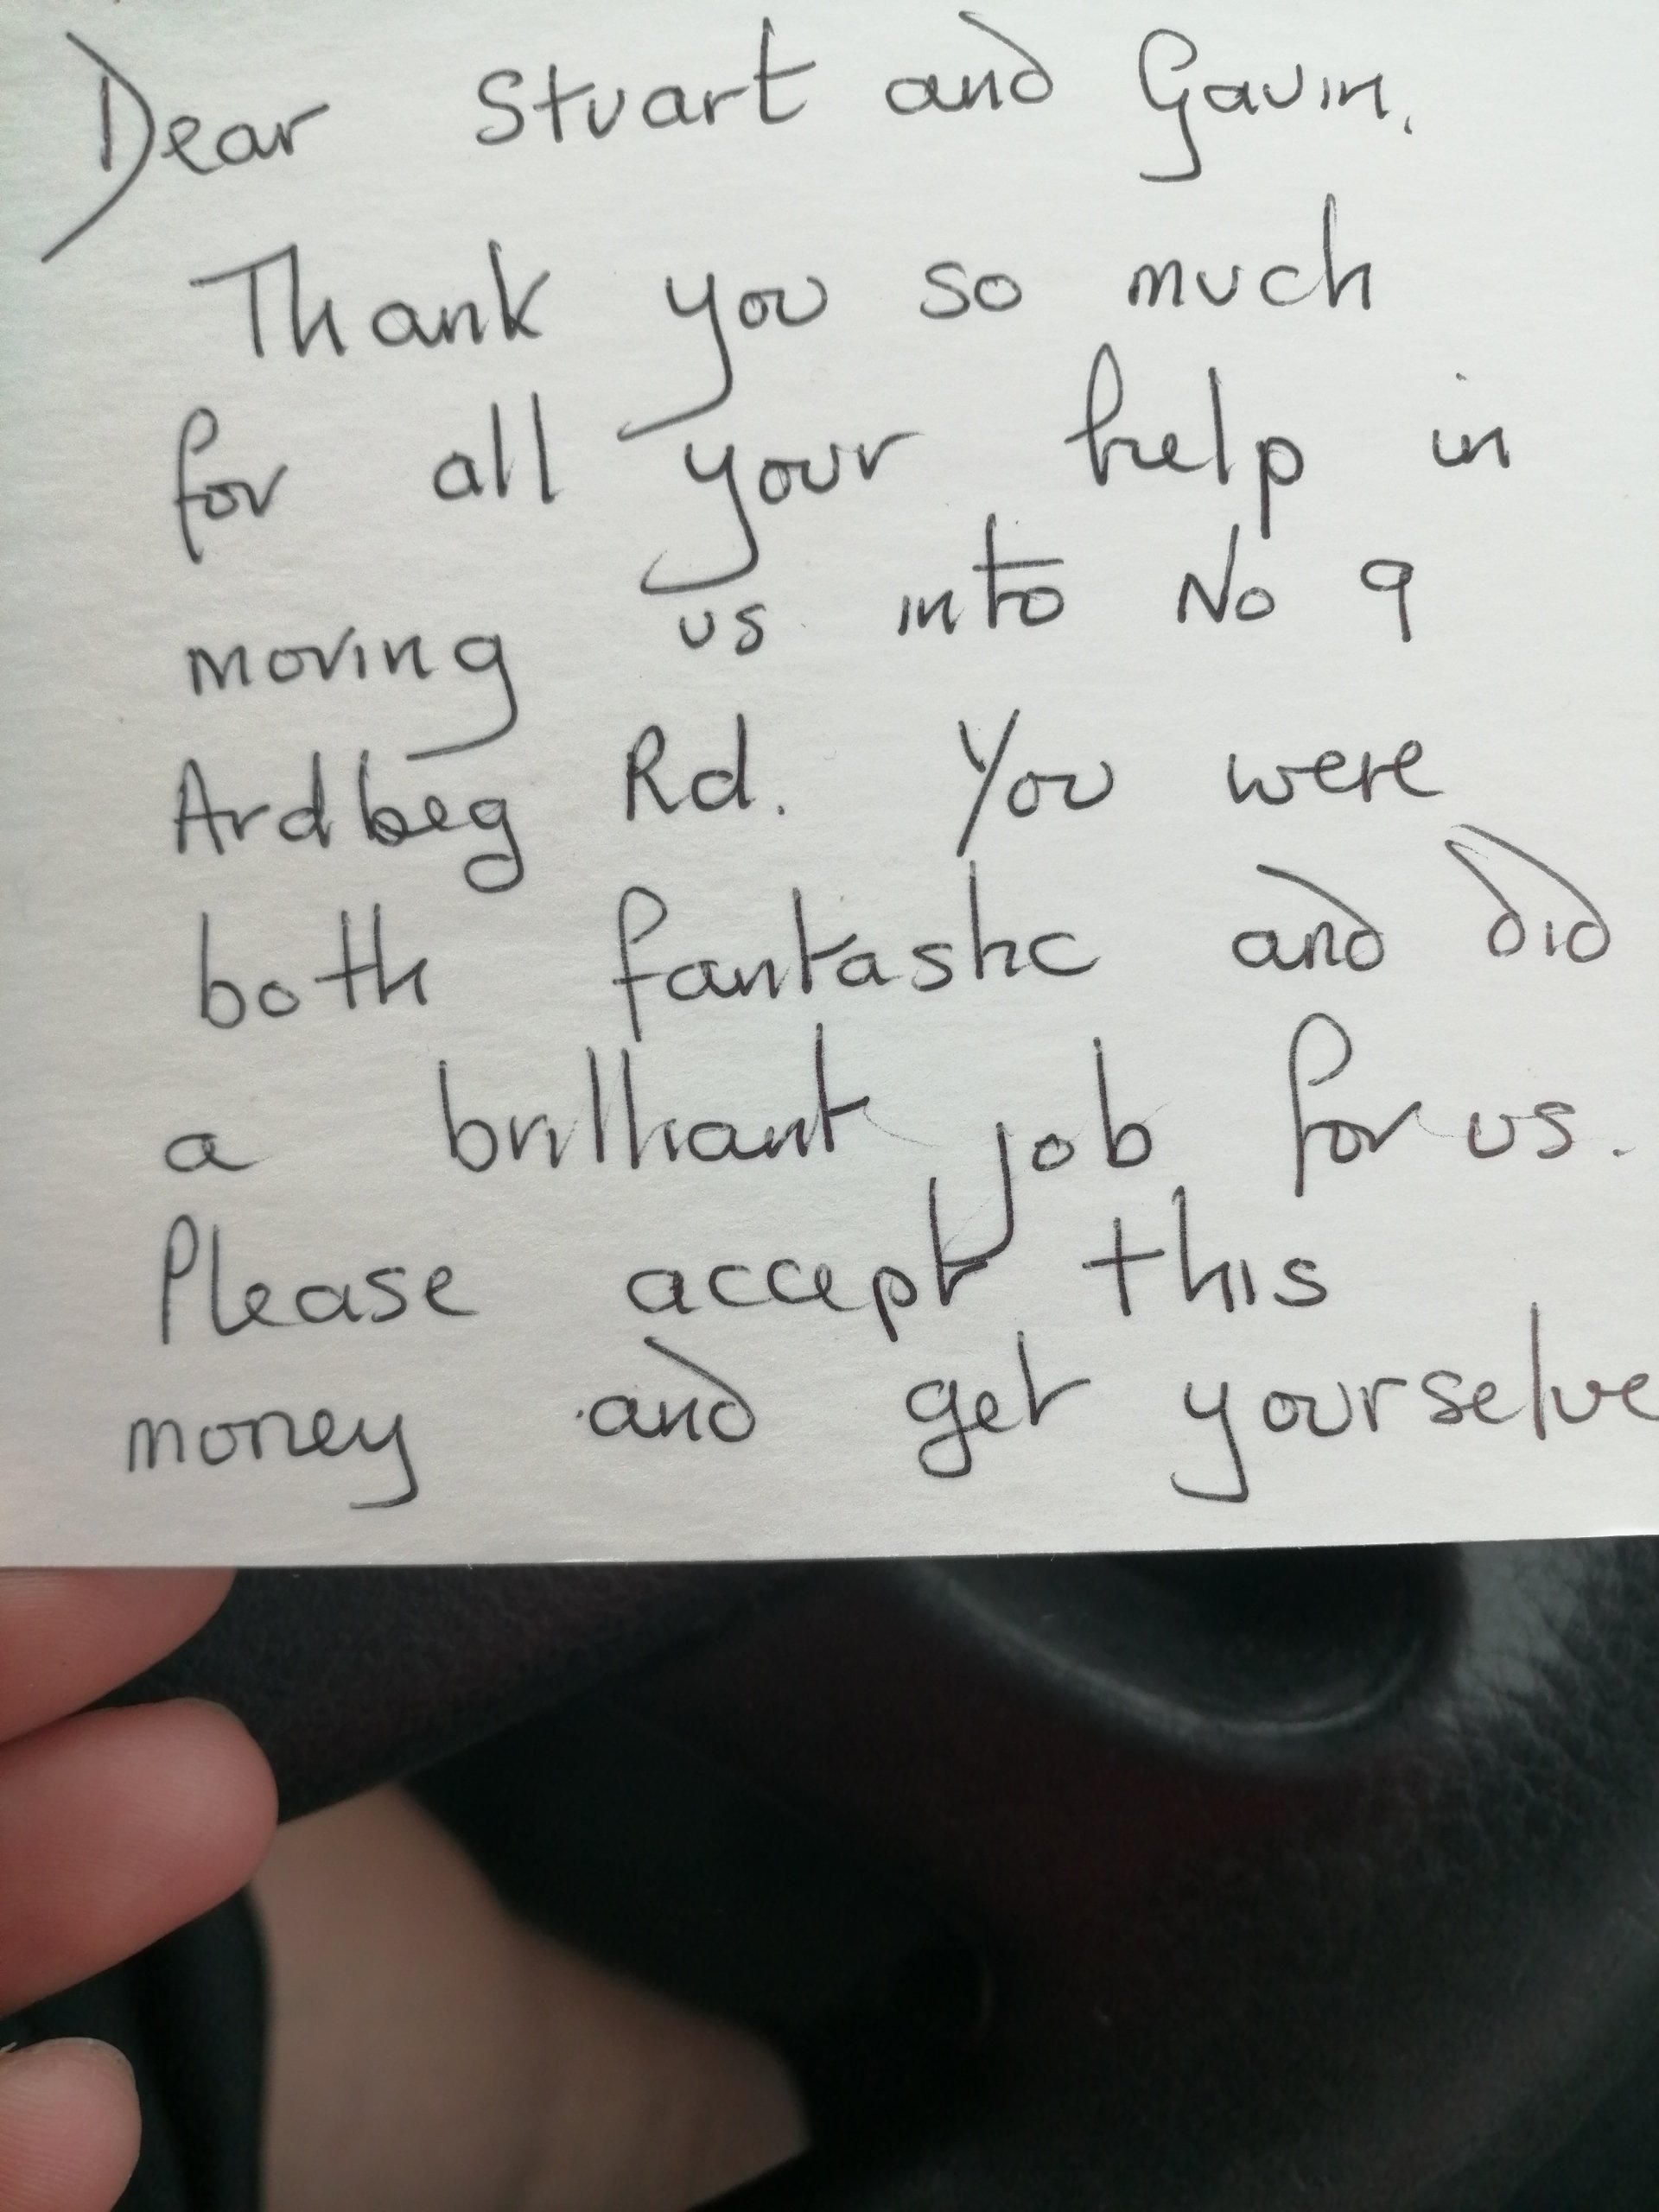 Dear Stuart and Gavin,
Thank you so much
for all your help in
moving us into No 9
Ardbeg Rd. You were
both fantastic and did
a brilliant job for us.
Please accept this
money and get yourselve